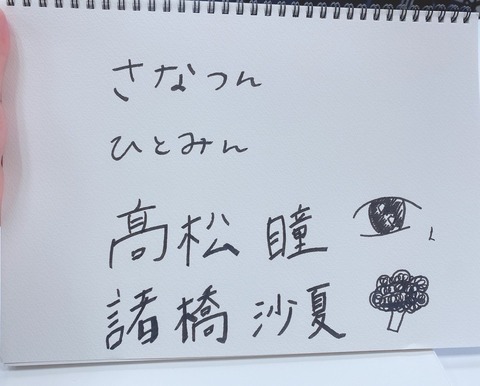 さなつん
ひとみん
髙松 瞳
諸橋 沙夏